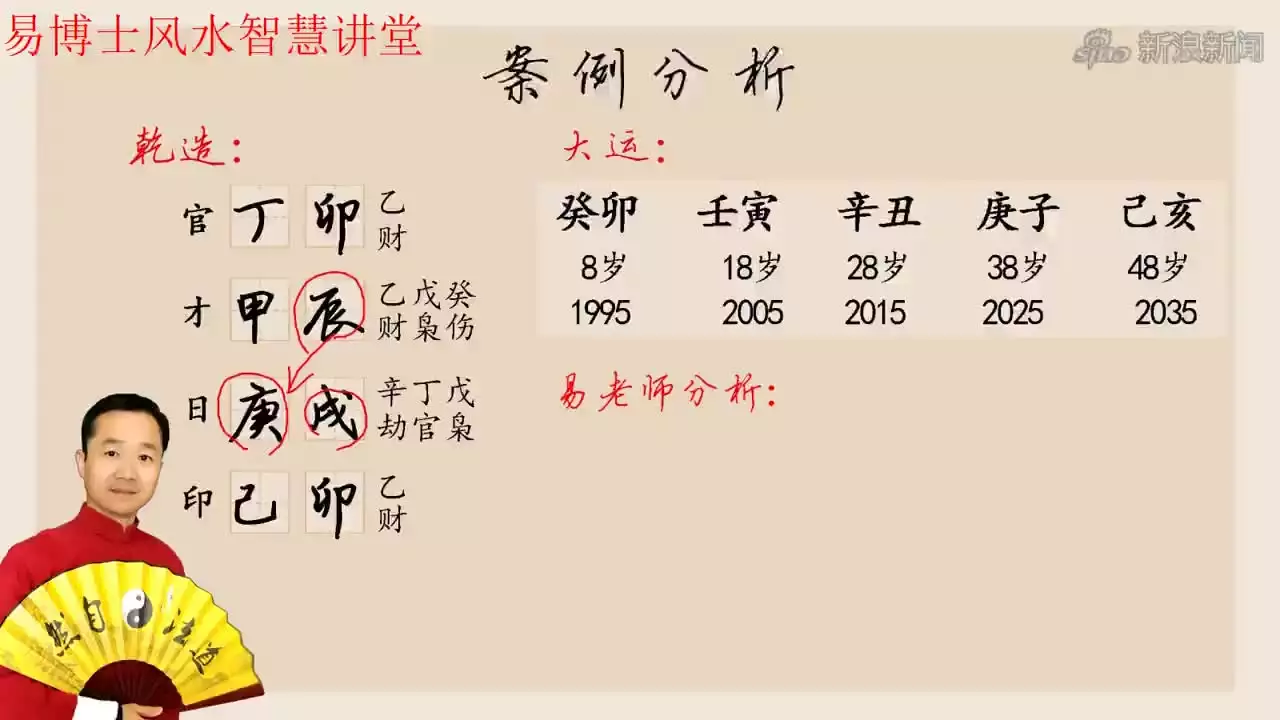 易博士风水智慧讲堂
sina 新浪新闻
案例分析
乾造：
官 丁 卯 乙
财
才 甲 辰 乙戊癸
财枭伤
日 庚 戌 辛丁戊
劫官枭
印 己 卯 乙
财
大运：
癸卯 壬寅 辛丑 庚子 己亥
8岁 18岁 28岁 38岁 48岁
1995 2005 2015 2025 2035
易老师分析：
然自法道